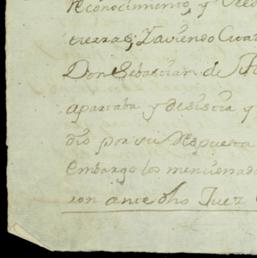 reconocimiento, y
tierras; Haviendo
Don Sebastian de
apartaba y desistia y
dio por su Respuesta
embargo los mencionad
ron ante dho Juez